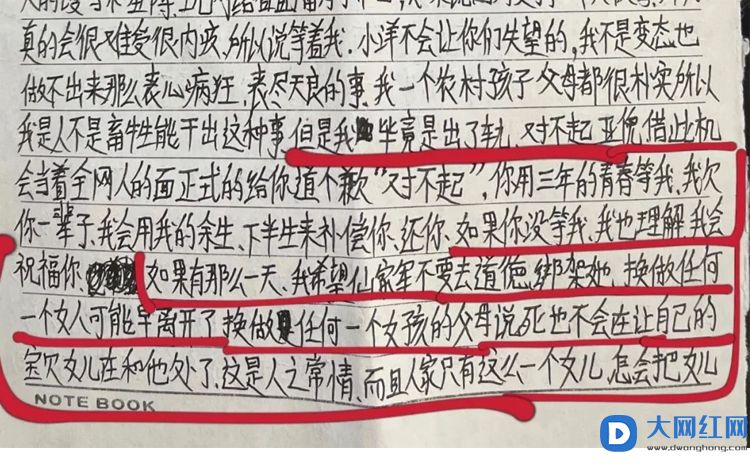 真的会很难受很内疚,所以说等着我.小洋不会让你们失望的,我不是变态也
做不出来那么丧心病狂、丧尽天良的事.我一个农村孩子父母都很朴实所以
我是人不是畜牲能干出这种事但是我毕竟是出了轨、对不起亚倪借此机
会当着全网人的面正式的给你道个歉“对不起”,你用三年的青春等我、我欠
你一辈子、我会用我的余生、下半生来补偿你、还你、如果你没等我、我也理解我会
祝福你、如果有那么一天、我希望仙家军不要去道德绑架她、换做任何
一个女人可能早离开了换做任何一个女孩的父母说死也不会在让自己的
宝贝女儿在和他处了、这是人之常情、而且人家只有这么一个女儿,怎会把女儿
NOTE BOOK
大网红网
www.dwanghong.com